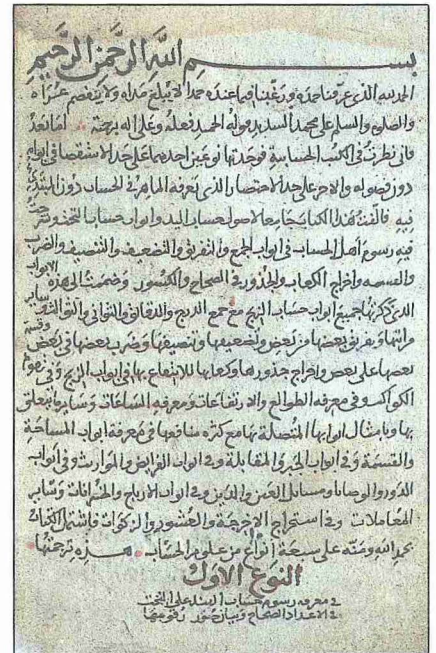 بسم الله الرحمن الرحيم
الحمد لله الذى عرفنا حمده ورغبنا فيما عنده حمدا لا يبلغ مداه ولا
والصلوه والسلم على محمد وعلى اله برحمته اما بعد
فانى نظرت فى الكتب الحسابية فوجدتها نوعين احدهما على حد الاستقصا فى ابوابه
دون فصوله والاخر على حد الاختصار الذى يعرفه الماهر فى الحساب دون المبتدى
فيه فالفت هذا الكتاب جامعا لاصول حساب اليد وابواب حساب التخت وشرحت
فيه رسوم اهل الحساب فى ابواب الجمع والتفريق والتضعيف والتنصيف والضرب
والقسمه واخراج الكعاب والجذور فى الصحاح والكسور وضممت الى هذه الابواب
الذى ذكرتها جميع ابواب حساب الزيج مع جمع الدرج والدقائق والثوانى والثوالث وساير
مراتبها وتفريق بعضها من بعض وتضعيفها وتنصيفها وضرب بعضها فى بعض وقسمة
بعضها على بعض واخراج جذورها وكعابها للانتفاع بها فى ابواب الزيج وفى تقويم
الكواكب وفى معرفه الطوالع والارتفاعات ومعرفه المسافات وسايره بتعلق
بها وبامثال ابوابها المتصلة بها مع كثره منافعها فى معرفة ابواب المساحة
والقسمة وفى ابواب الجبر والمقابلة وفى ابواب الفرايض والمواريث وفى ابواب
الدور والوصايا ومسائل العين والدين وفى ابواب الارباح والخسرانات وساير
المعاملات وفى استخراج الاجرحة والعشور والزكوات فاشتمل الكتاب
بحمد الله ومنه على سبعة انواع من علوم الحساب هذه ترجمتها
النوع الاول
فى معرفه رسوم حساب الهند على التخت
فى الاعداد الصحاح وبيان صور رقومها